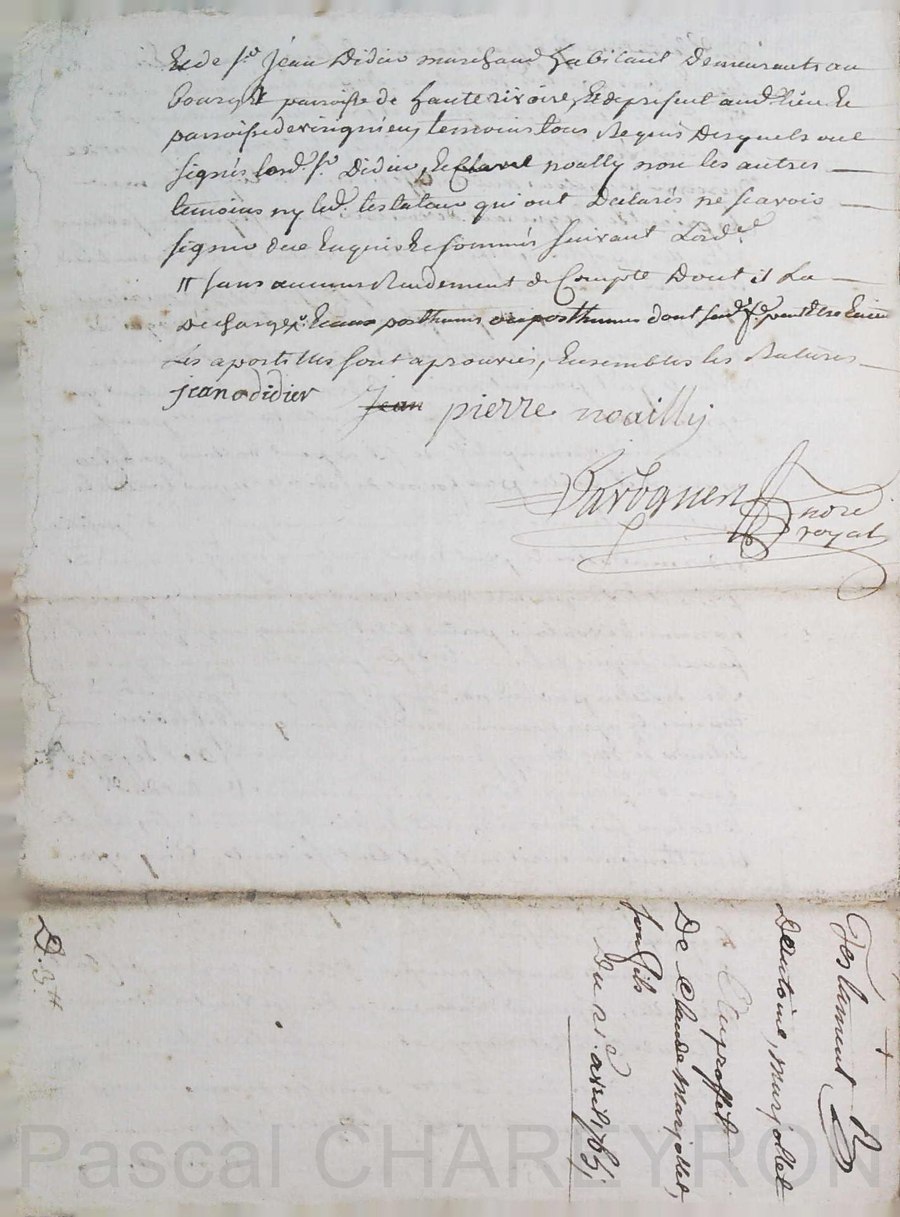 Et de sr Jean Didier marchand habitant Demeurants au
bourg & parroisse de hauterivoire, & de present aud. lieu &
parroisse de vingnieu, temoins tous Requis Desquels ont
signés led. sr Didier, & Clavel noally non les autres
temoins ny led. testateur qui ont Declarés ne scavoir
signer de ce Enquis & sommés suivant Lord.ce
sans aucuns Rendement de Compte Dont il La
Decharge, posthumes ou posthumes dont
Les apostilles sont aprouvées, Ensembles les Ratures
jean didier Jean pierre noailly
nore
royal
Testament
D'antoine, marjollet
au proffit
De Claude marjollet,
son fils
Du avril
D. 3tt
Pascal CHAREYRON